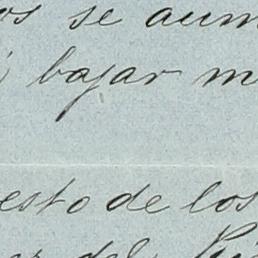 os se aum
bajar m
esto de los
del